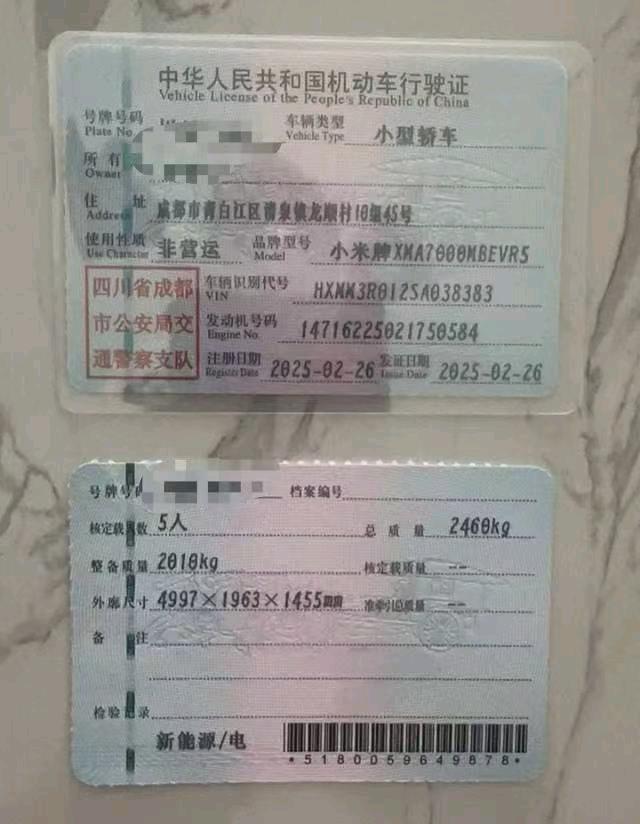 中华人民共和国机动车行驶证
Vehicle License of the People's Republic of China
号牌号码 车辆类型 小型轿车
Plate No. Vehicle Type
所有
Owner
住址 成都市青白江区清泉镇龙顺村10组45号
Address
使用性质 非营运 品牌型号 小米牌XMA7000MBEVR5
Use Character Model
四川省成都市公安局交通警察支队
车辆识别代号 HXMM3R012SA038383
VIN
发动机号码 14716225021750584
Engine No.
注册日期 2025-02-26 发证日期 2025-02-26
Register Date Issue Date
号牌号 档案编号
核定载人数 5人 总质量 2460kg
整备质量 2010kg 核定载质量 --
外廓尺寸 4997×1963×1455mm 准牵引总质量 --
备注
检验记录
新能源/电
*5180059649878*